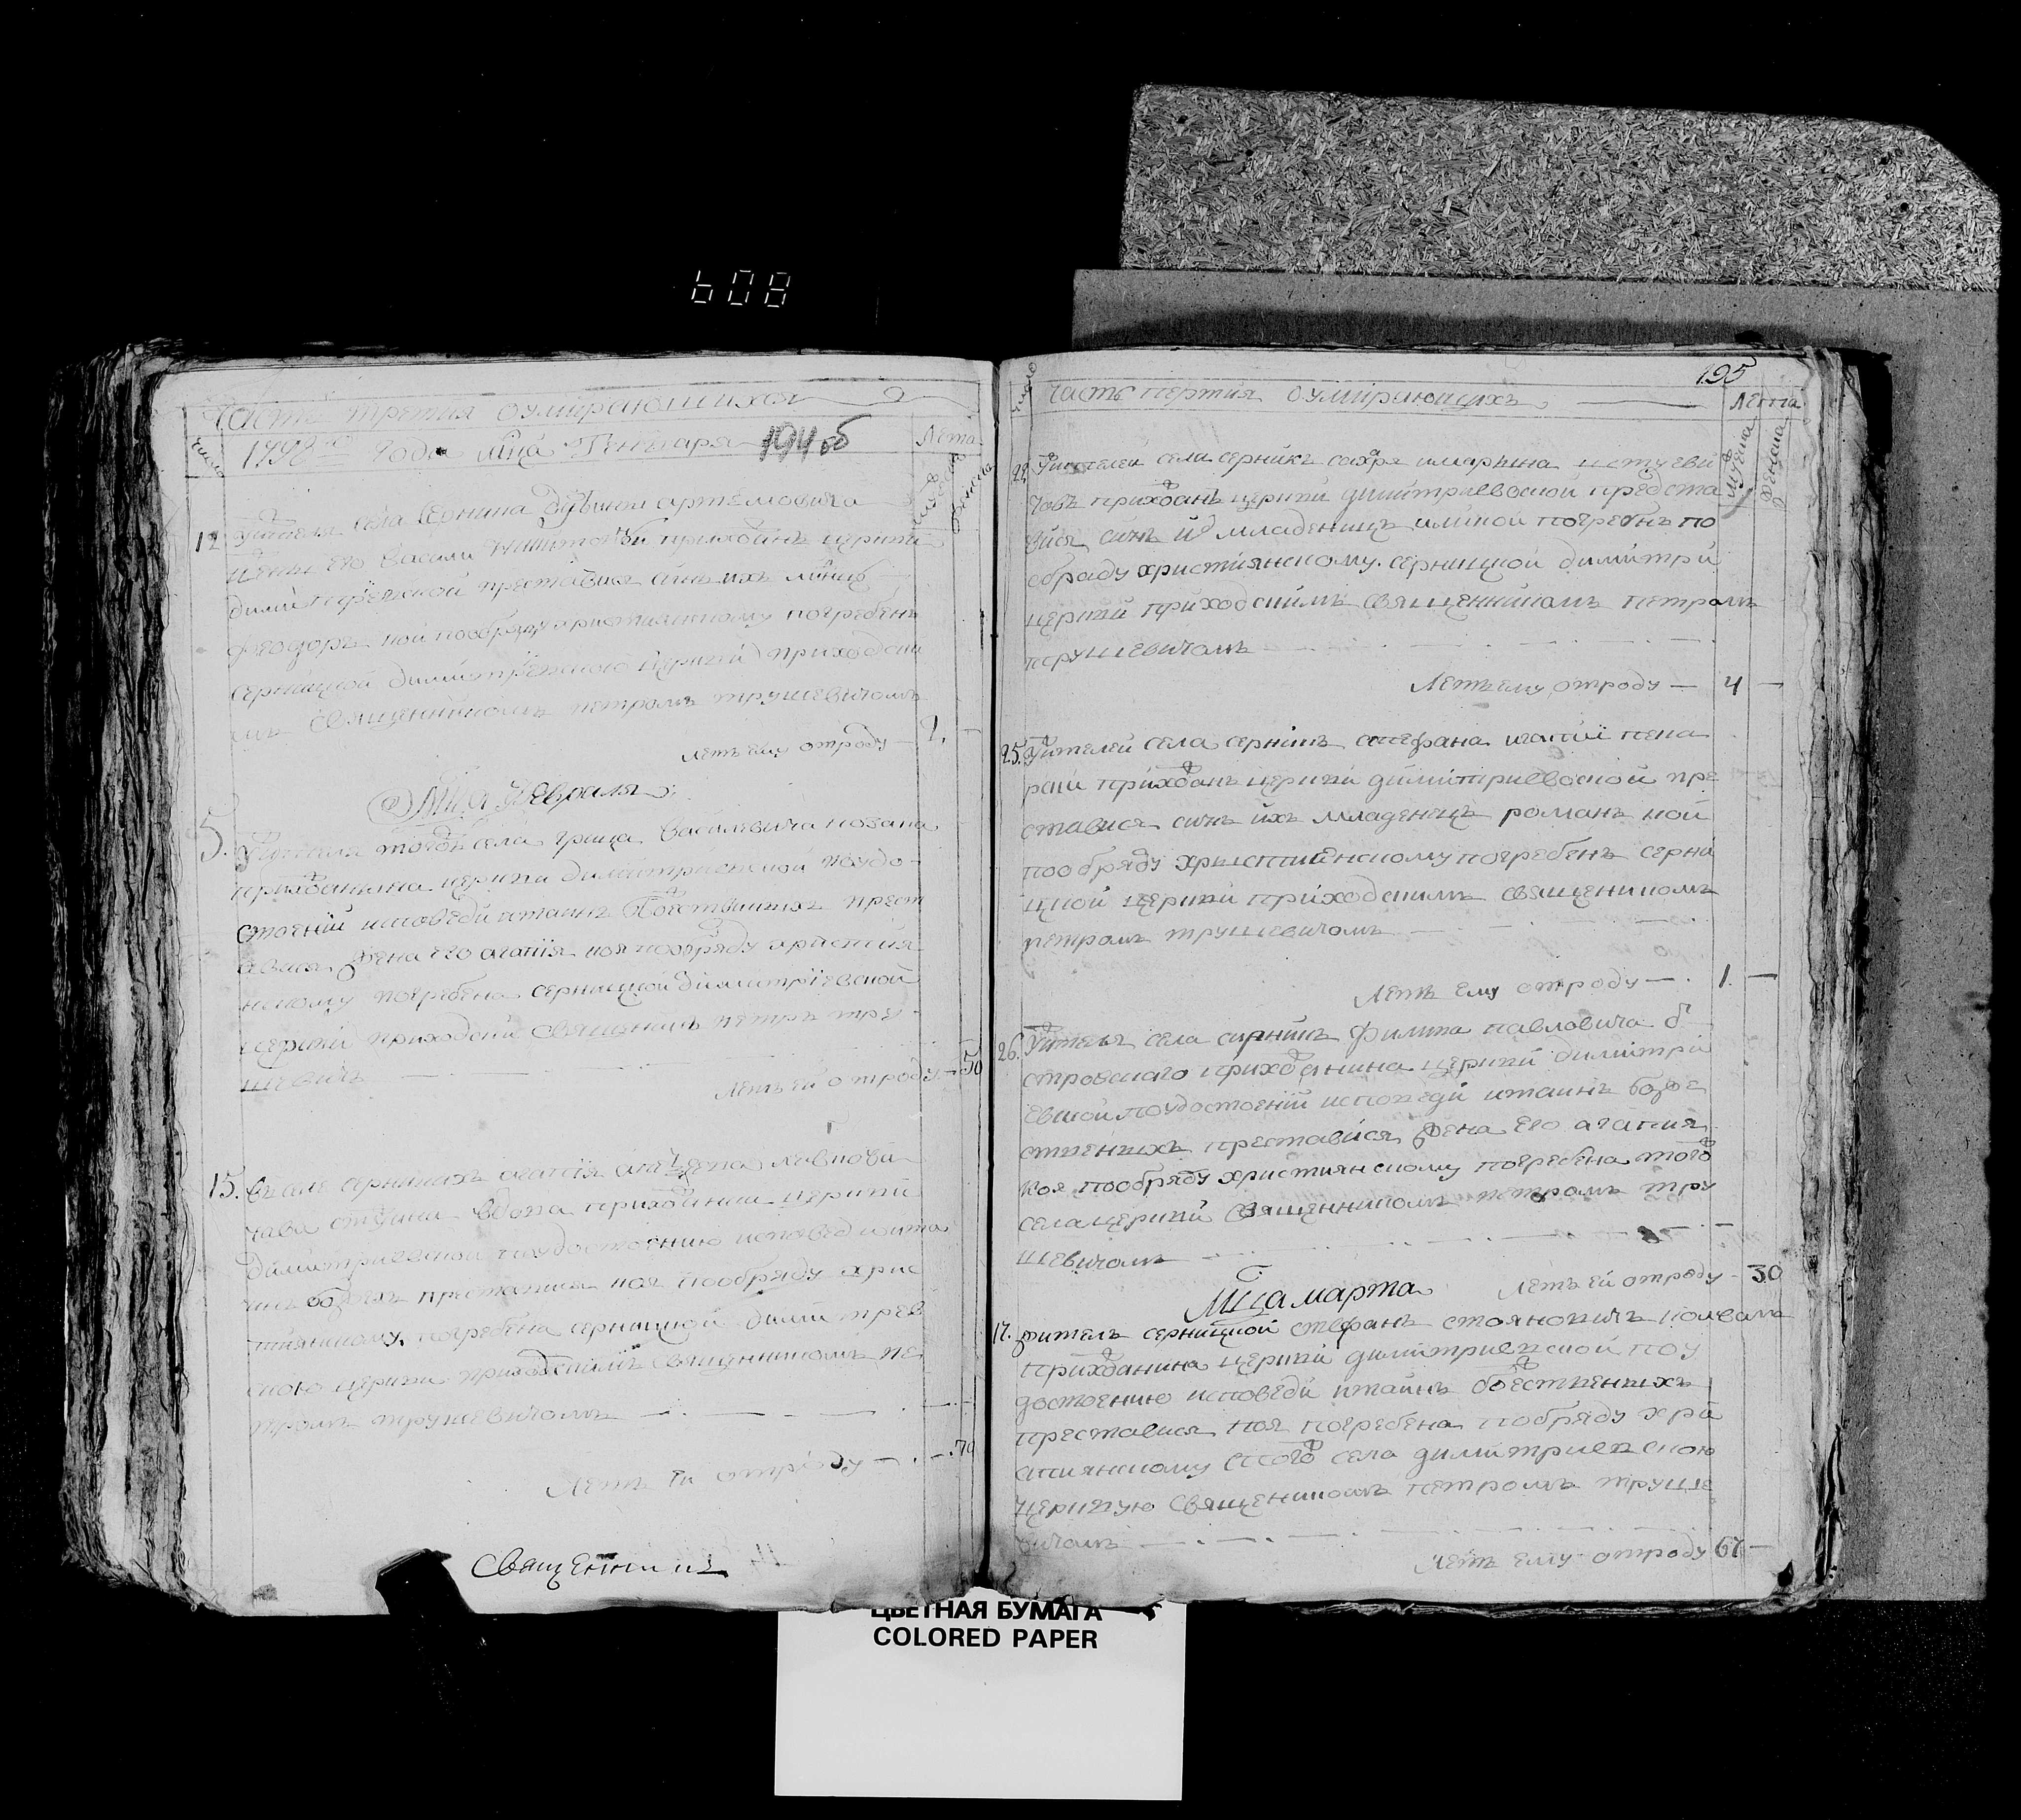 608
Часть третия оумирающихся
1798 года мца Генваря 194 об
число
Лета
12 Жителя села Серника
его Васили прихожанъ церкви
димитриевской преставися синъ ихъ
феодоръ кой пообряду христианскому погребенъ
серницкой димитриевскою церкви приходски
мъ священникомъ петромъ трушевичомъ
летъ ему отроду — 2. —
Мца Февраля
5. Жителя тогожъ села грица василевича козака
прихожанина церкви димитриевской поудо-
стоений исповеди итаинъ Божественныхъ прест
ависа жена его агапия коя пообряду христия
нскому погребена серницкой димитриевской
церкви приходский священикъ петръ тру-
шевичъ
Летъ ей отроду — 50
15. въ селе серникахъ агапия
вдова церкви
димитриевской поудостоению исповеди ита
инъ преставися коя пообряду хрис
тиянскому погребена серницкой димитриев
скою церкви приходскимъ священникомъ пе
тромъ трушевичомъ
Летъ ей отроду — 70
Священникъ
195
число
часть пертия оумирающихъ
Лета
мужеска
женска
22 Жителей села серникъ
прихожанъ церкви димитриевской предста
вися синъ младеницъ погребнъ по
обраду християнскому серницкой димитри
церкви приходскимъ священникомъ петромъ
трушевичомъ
Летъ ему отроду — 4 —
25. Жителей села серникъ стефана
прихожанъ церкви димитриевской пре
ставися синъ ихъ младеницъ романъ кой
пообряду християнскому погребенъ серни
цкой церкви приходскимъ священикомъ
петромъ трушевичомъ
Летъ ему отроду — 1. —
26. Жителя села серникъ филипа павловича б
стровскаго прихожанина церкви димитри
евской поудостоений исповеди итаинъ боже
ственихъ преставися жена его агапия
коя пообряду християнскому погребена тогожъ
села церкви священникомъ петромъ тру
шевичомъ
Летъ ей отроду — 30
Мца марта
17. житель серницкой стефанъ стояновичъ
прихожанина церкви димитриевской поу
достоению исповеди итаинъ божественихъ
преставися коя погребена пообряду хри
стиянскому тогожъ села димитриевскою
церквую священикомъ петромъ труше
вичомъ
Летъ ему отроду 67 —
ЦВЕТНАЯ БУМАГА
COLORED PAPER